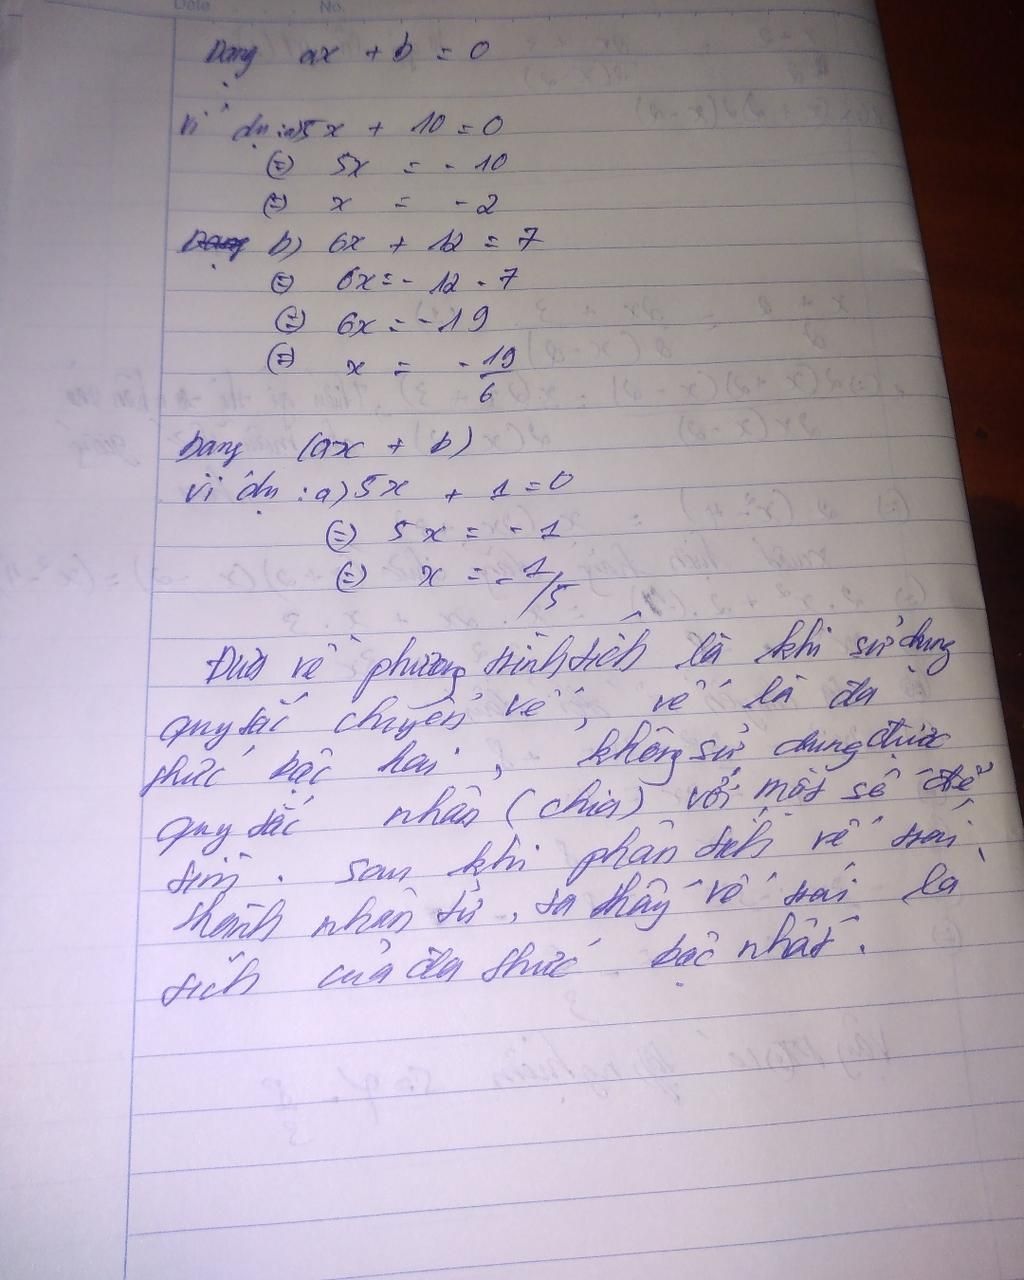 Date No.
Dạng ax + b = 0
Ví dụ: a) 5x + 10 = 0
(=) 5x = - 10
(=) x = - 2
b) 6x + 12 = 7
(=) 6x = - 12 - 7
(=) 6x = - 19
(=) x = - 19/6
Dạng (ax + b)
Ví dụ : a) 5x + 1 = 0
(=) 5x = - 1
(=) x = - 1/5
Đưa về phương trình tích là khi sử dụng
quy tắc chuyển vế, vế là đa
thức bậc hai, không sử dụng được
quy tắc nhân (chia) với một số để
tìm. Sau khi phân tích vế trái
thành nhân tử, ta thấy vế trái là
tích của đa thức bậc nhất.